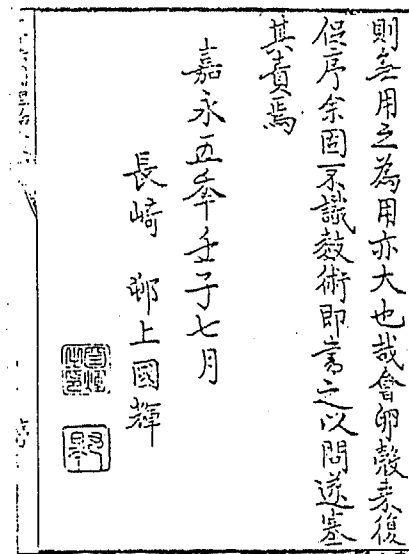 則無用之為用亦大也哉會卵殼来復
促序余固不識數術即書之以問遂塞
其責焉
嘉永五年壬子七月
長崎 邨上國輝